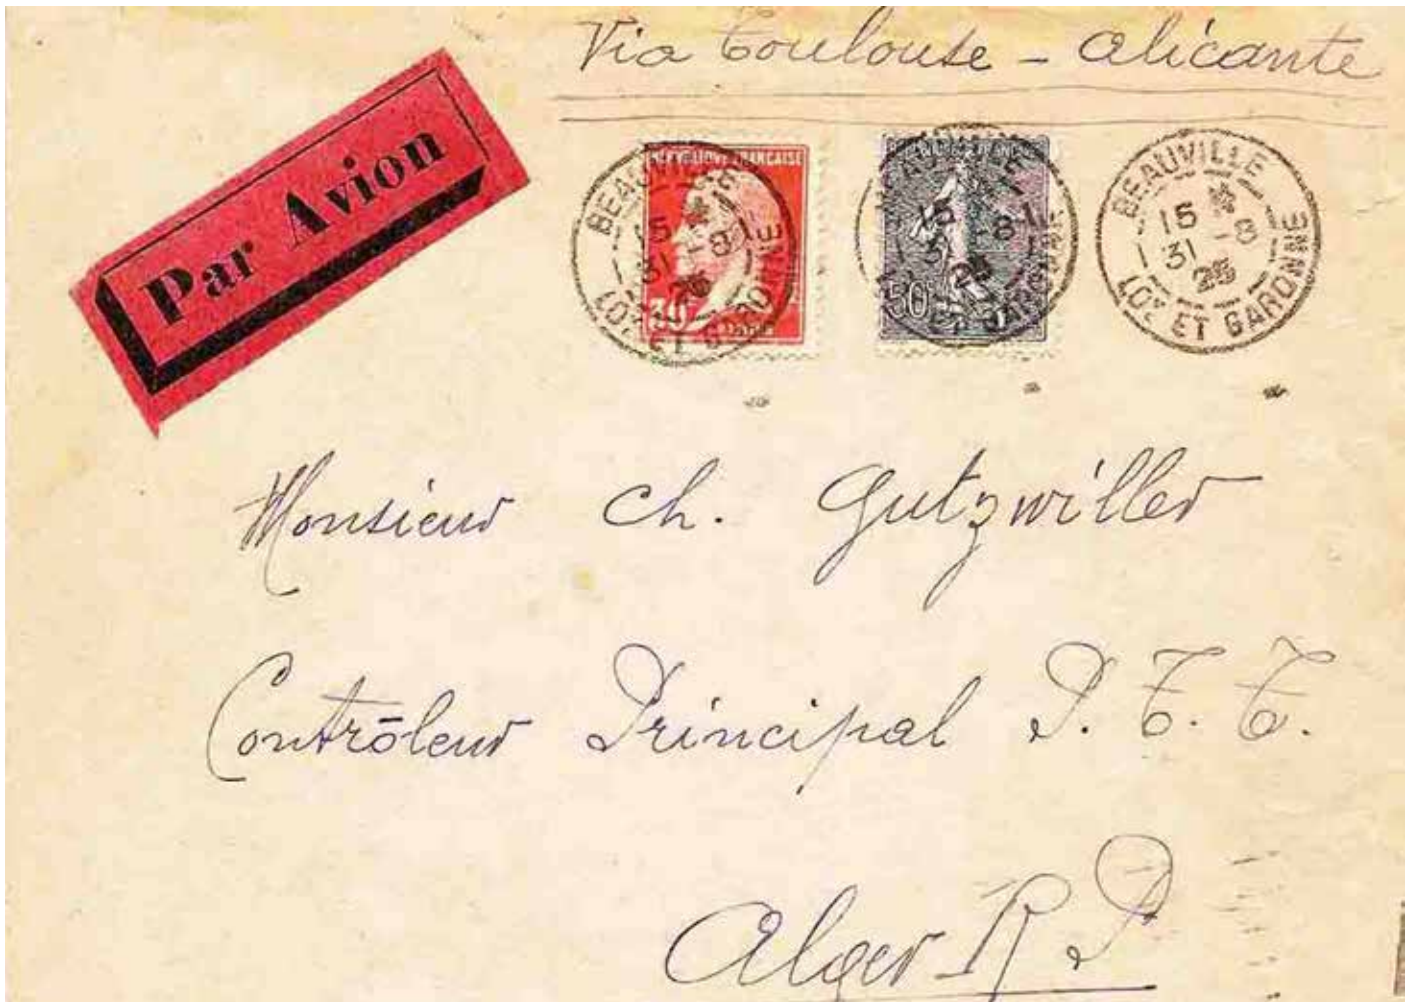 Via Toulouse - Alicante
Par Avion
REPUBLIQUE FRANCAISE
30c
PASTEUR
BEAUVILLE
15 *
31 -8
25
LOT ET GARONNE
50c
BEAUVILLE
15
31 -8
25
LOT ET GARONNE
BEAUVILLE
15 *
31 -8
25
LOT ET GARONNE
Monsieur Ch. Gutzwiller
Contrôleur Principal P. T. T.
Alger R P